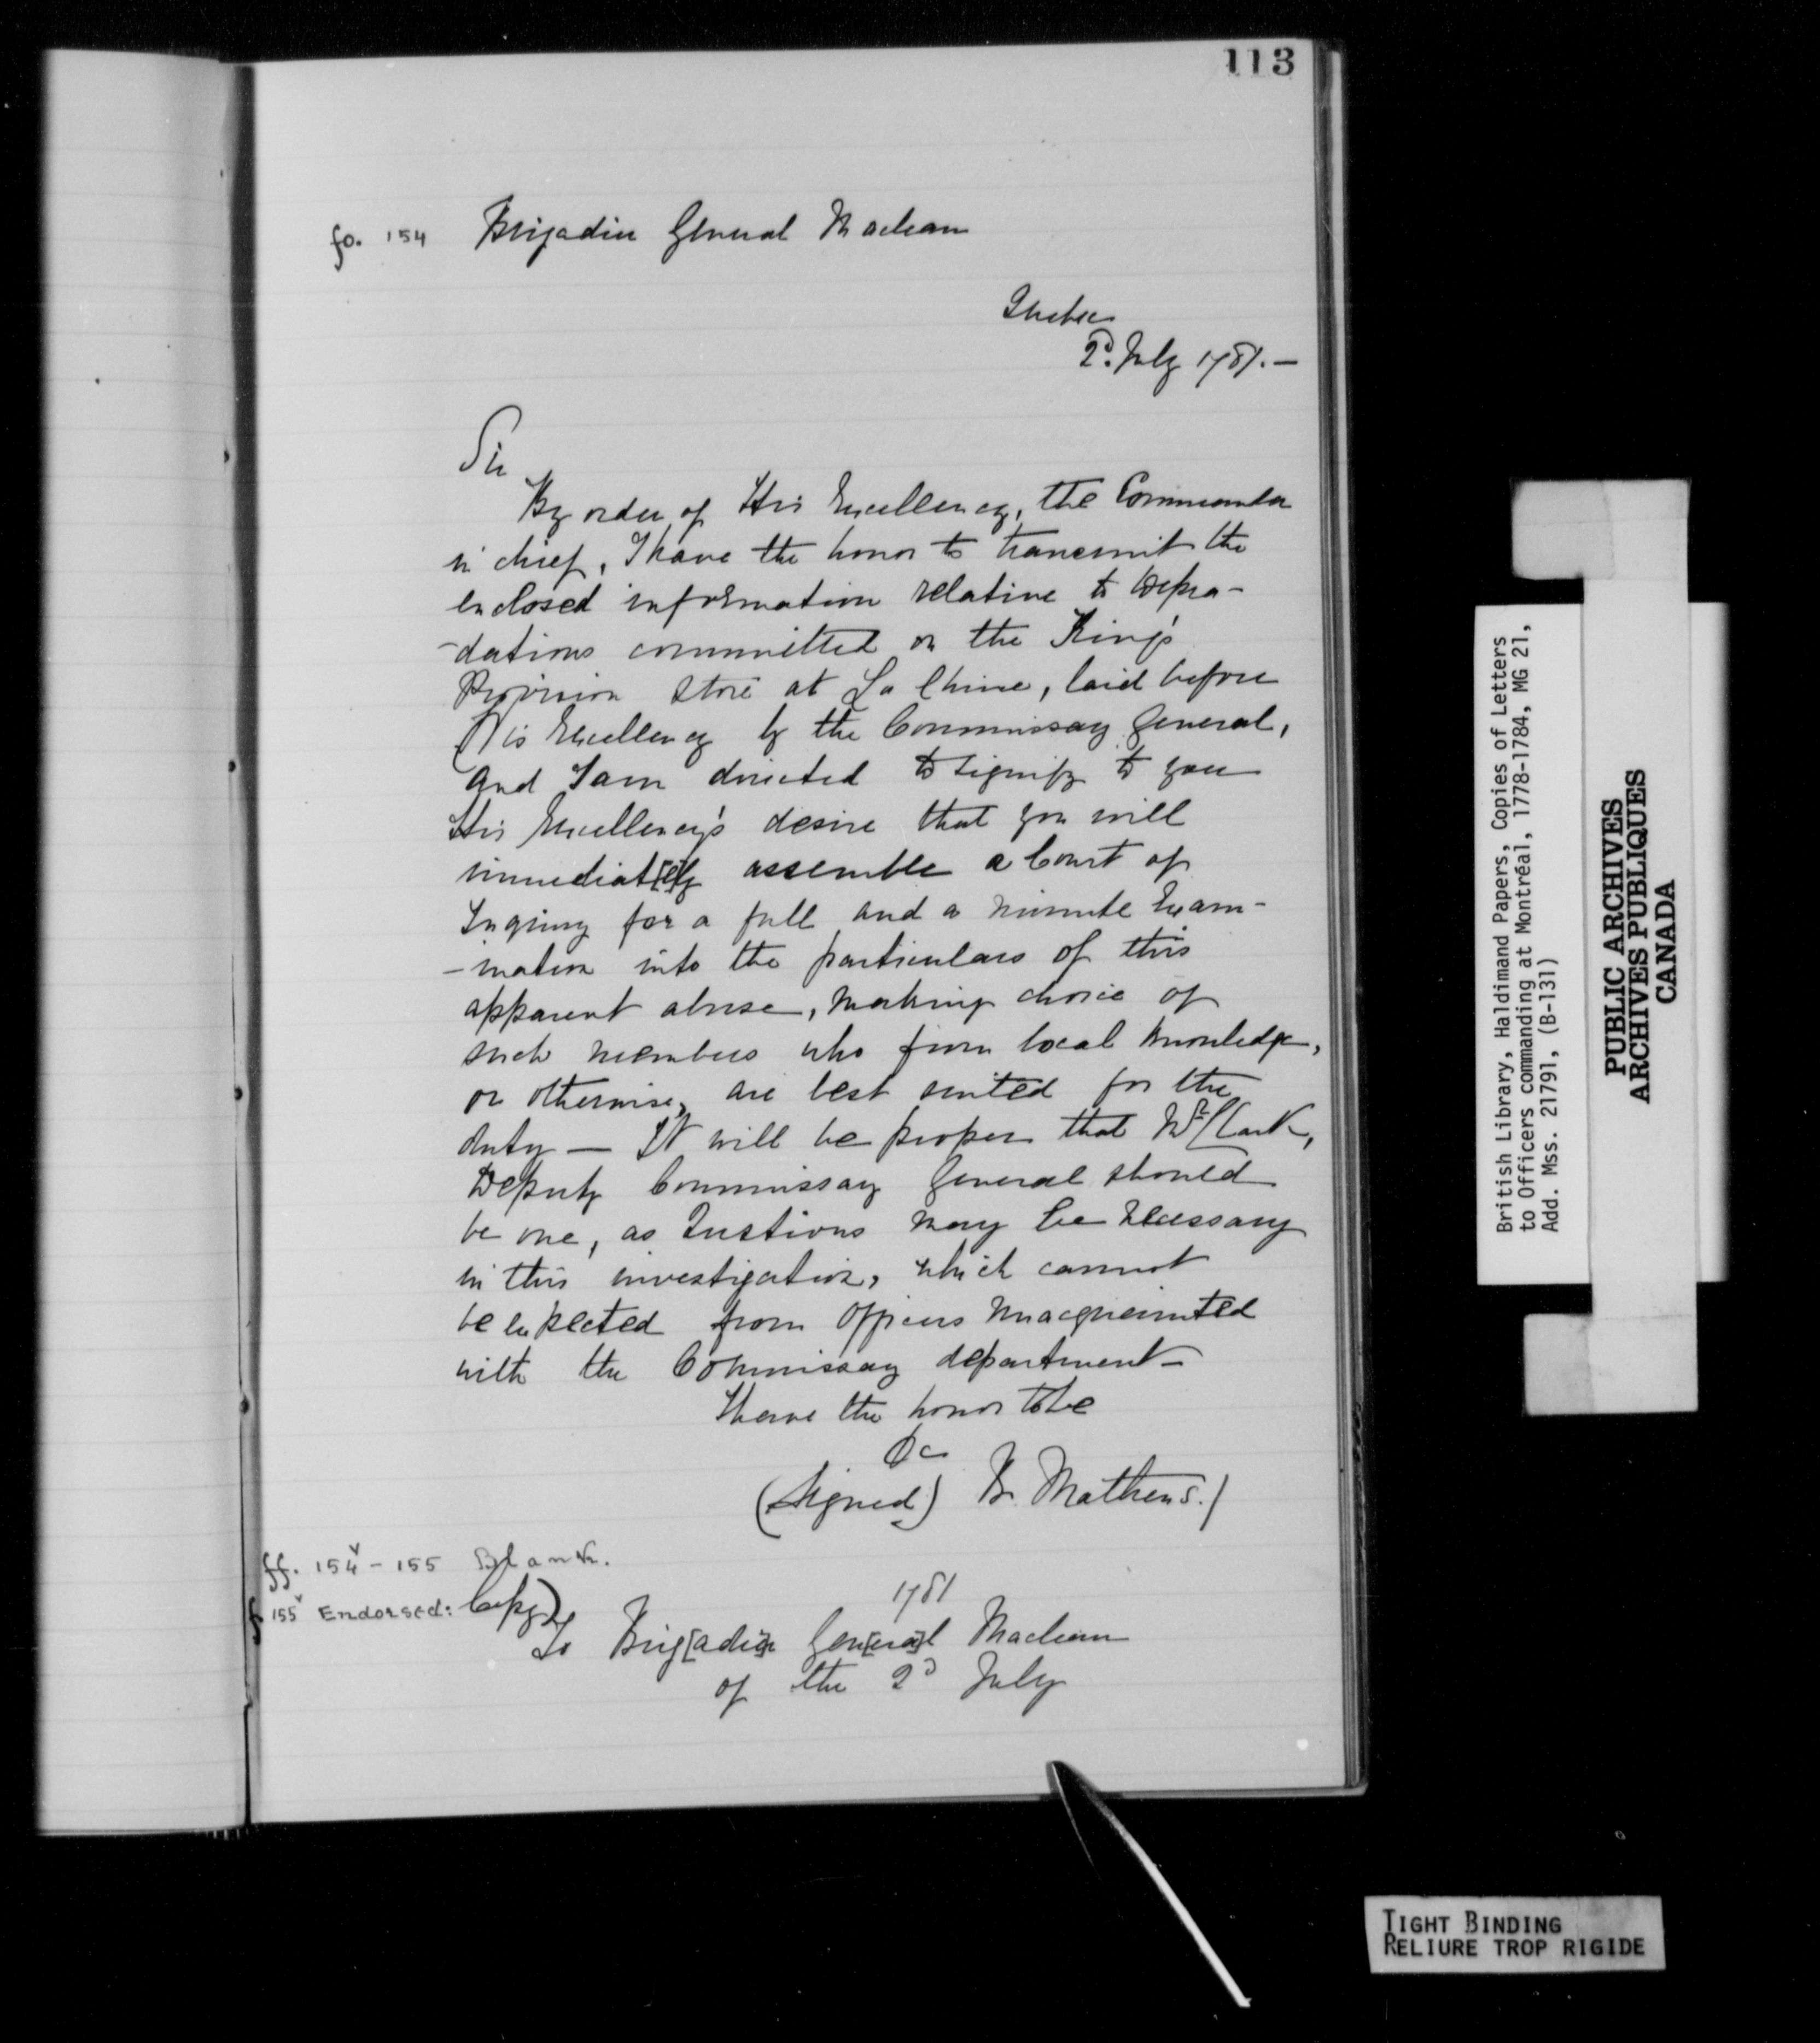 113
fo. 154 Brigadier General Maclean
Quebec
2d. July 1781.—
Sir
By order of His Excellency, the Commander
in chief, I have the honor to transmit the
enclosed information relative to Depra-
-dations committed on the King's
Provision Store at La Chine, laid before
His Excellency by the Commissary General,
and I am directed to signify to you
His Excellency's desire that you will
immediat[e]ly assemble a Court of
Inquiry for a full and a minute Exam-
-ination into the particulars of this
apparent abuse, making choice of
such members who from local knowledge,
or otherwise, are best suited for the
duty — It will be proper that Mr Clark,
Deputy Commissary General should
be one, as Questions may be necessary
in this investigation, which cannot
be expected from Officers unacquainted
with the Commissary department—
I have the honor to be
&c
(Signed) R. Mathews./
ff. 154v - 155 Blank.
f 155v Endorsed: Copy)
1781
To Brig[adie]r Gen[era]l Maclean
of the 2d July
British Library, Haldimand Papers, Copies of Letters
to Officers commanding at Montréal, 1778-1784, MG 21,
Add. Mss. 21791, (B-131)
PUBLIC ARCHIVES
ARCHIVES PUBLIQUES
CANADA
TIGHT BINDING
RELIURE TROP RIGIDE